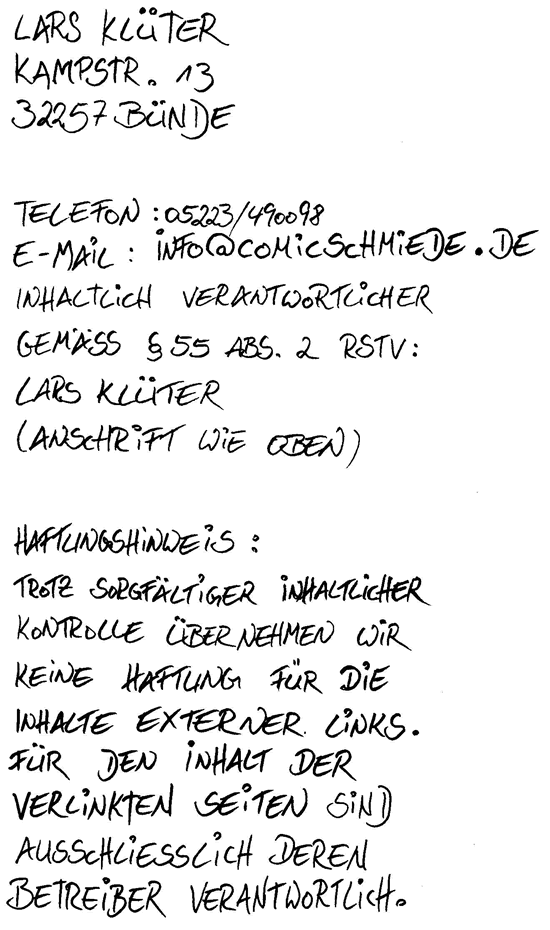 LARS KLÜTER
KAMPSTR. 13
32257 BÜNDE
TELEFON : 05223/490098
E-MAIL : INFO@COMICSCHMIEDE.DE
INHALTLICH VERANTWORTLICHER
GEMÄSS § 55 ABS. 2 RSTV:
LARS KLÜTER
(ANSCHRIFT WIE OBEN)
HAFTUNGSHINWEIS :
TROTZ SORGFÄLTIGER INHALTLICHER
KONTROLLE ÜBERNEHMEN WIR
KEINE HAFTUNG FÜR DIE
INHALTE EXTERNER LINKS.
FÜR DEN INHALT DER
VERLINKTEN SEITEN SIND
AUSSCHLIESSLICH DEREN
BETREIBER VERANTWORTLICH.